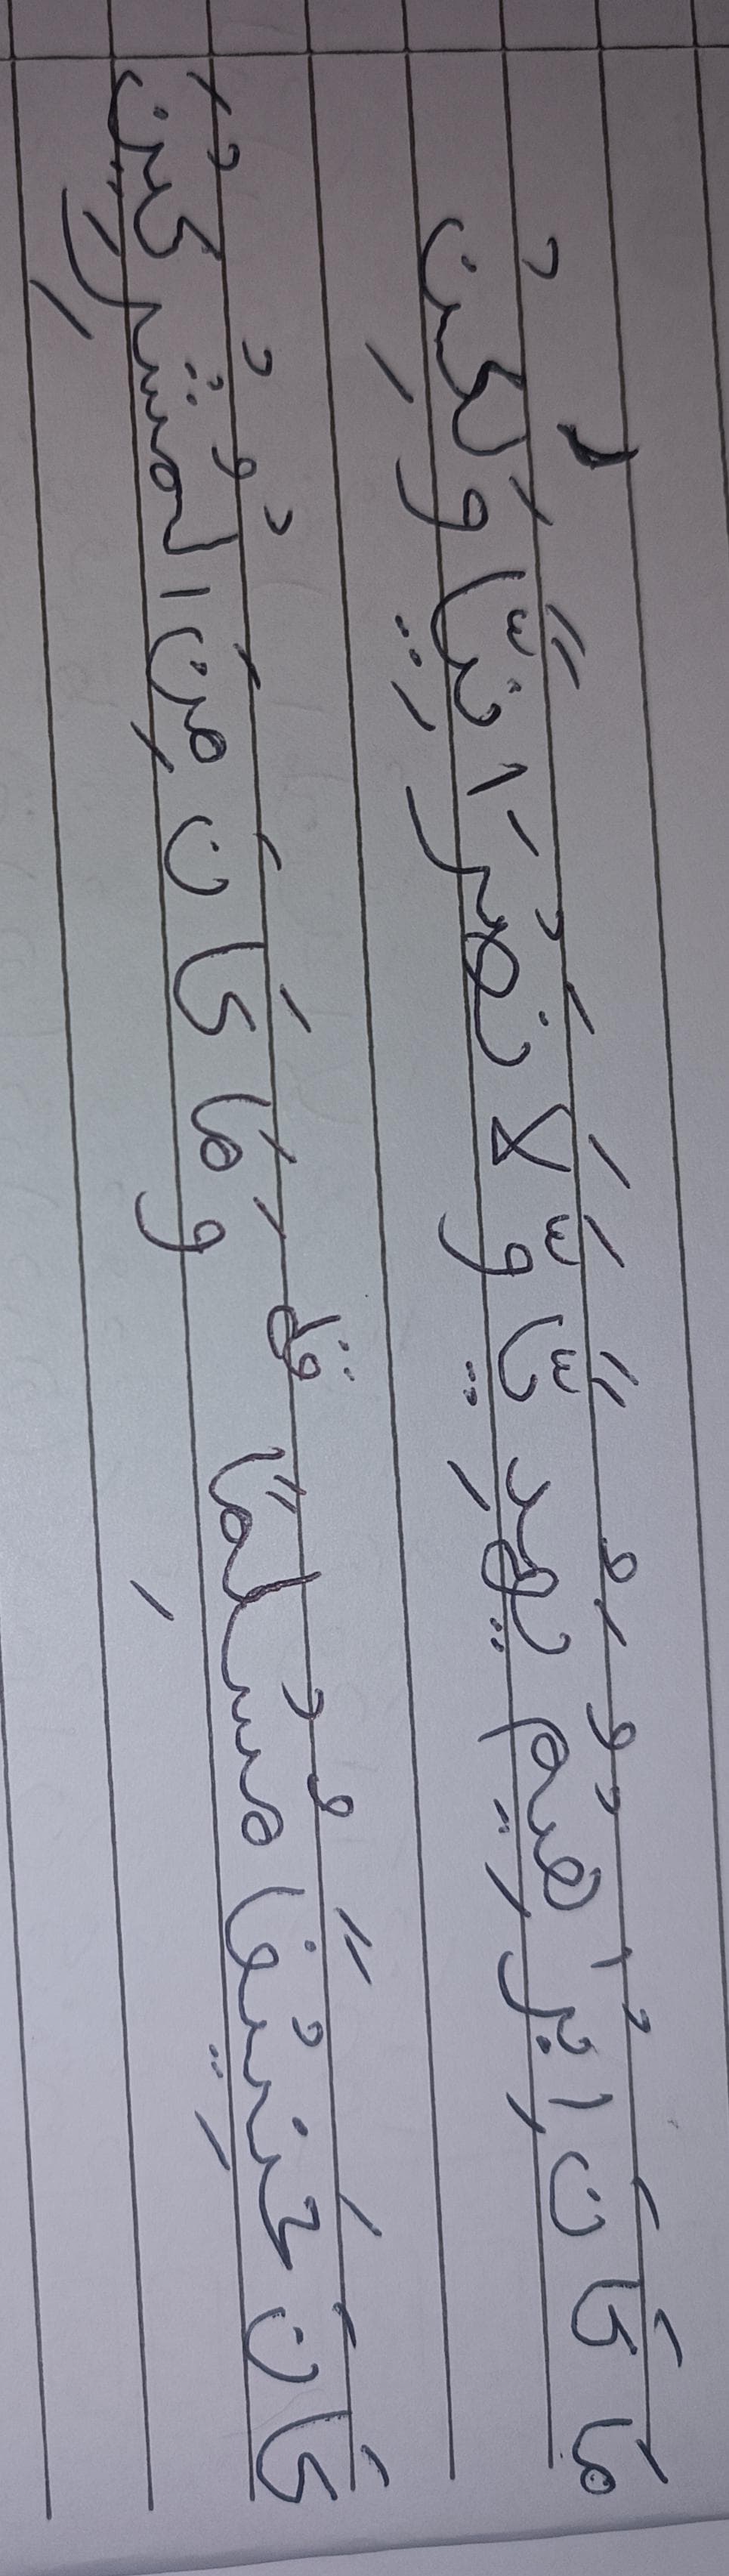 مَا كَانَ اِبْرٰهِيْمُ يَهُدِ يًّا وَّلَا نَصْرَا نِيًّا وَلٰكِنْ
كَانَ حَنِيْفًا مُسْلِمًا ۗ وَمَا كَانَ مِنَ الْمُشْرِكِيْنَ